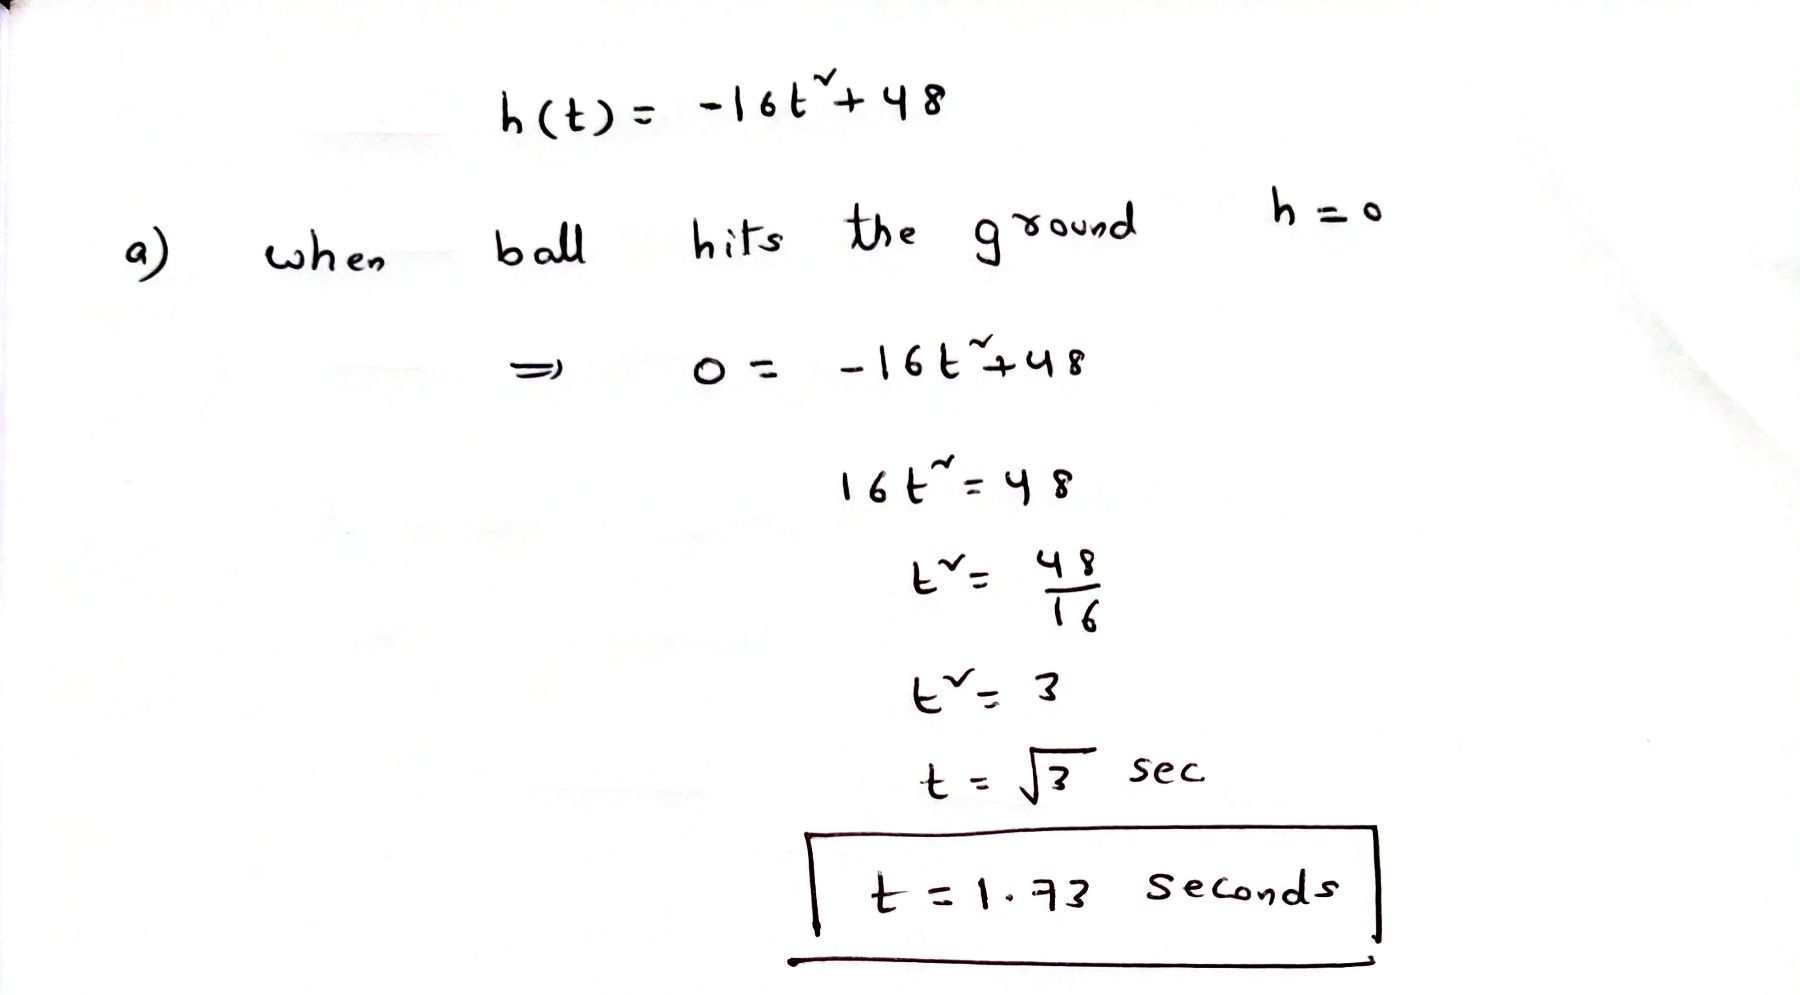 h(t) = -16t²+48
a) when ball hits the ground h=0
⇒ 0 = -16t²+48
16t²=48
t²= 48/16
t²= 3
t = √3 sec
t = 1.73 seconds